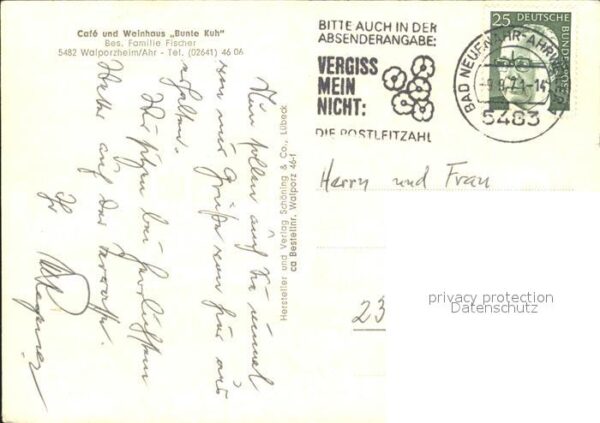 Café und Weinhaus „Bunte Kuh"
Bes. Familie Fischer
5482 Walporzheim/Ahr - Tel. (02641) 46 06
Nun sollen auch Sie einmal
von mir Grüße von hier aus
erhalten.
Wir sitzen bei herrlichem
Wetter auf der Terrasse.
Ihr
Hersteller und Verlag Schöning & Co., Lübeck
ca Bestellnr. Walporz 464
BITTE AUCH IN DER
ABSENDERANGABE:
VERGISS
MEIN
NICHT:
DIE POSTLEITZAHL
25 DEUTSCHE
BUNDESPOST
BAD NEUENAHR-AHRWEILER
5483
Herrn und Frau
23
privacy protection
Datenschutz